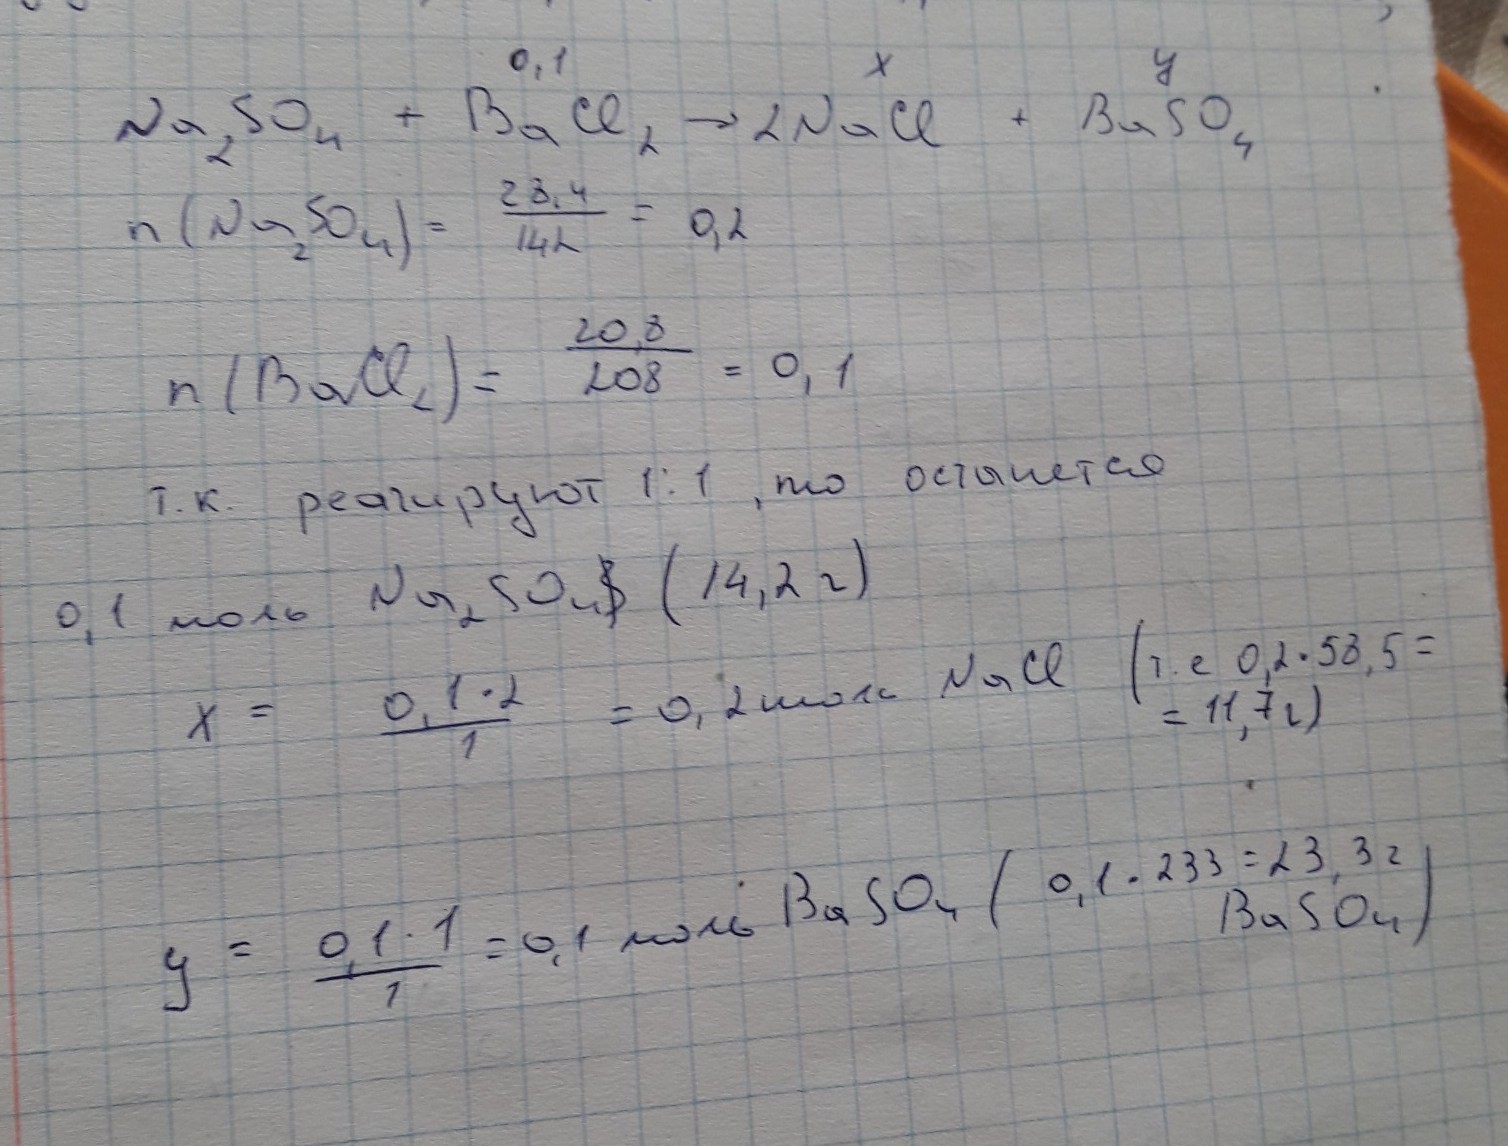 0,1 x y
Na₂SO₄ + BaCl₂ → 2NaCl + BaSO₄
n(Na₂SO₄) = 28,4/142 = 0,2
n(BaCl₂) = 20,8/208 = 0,1
т.к. реагируют 1:1, то останется
0,1 моль Na₂SO₄ (14,2 г)
x = 0,1·2/1 = 0,2 моль NaCl (т.е 0,2·58,5 =
= 11,7г)
y = 0,1·1/1 = 0,1 моль BaSO₄ (0,1·233 = 23,3г
BaSO₄)